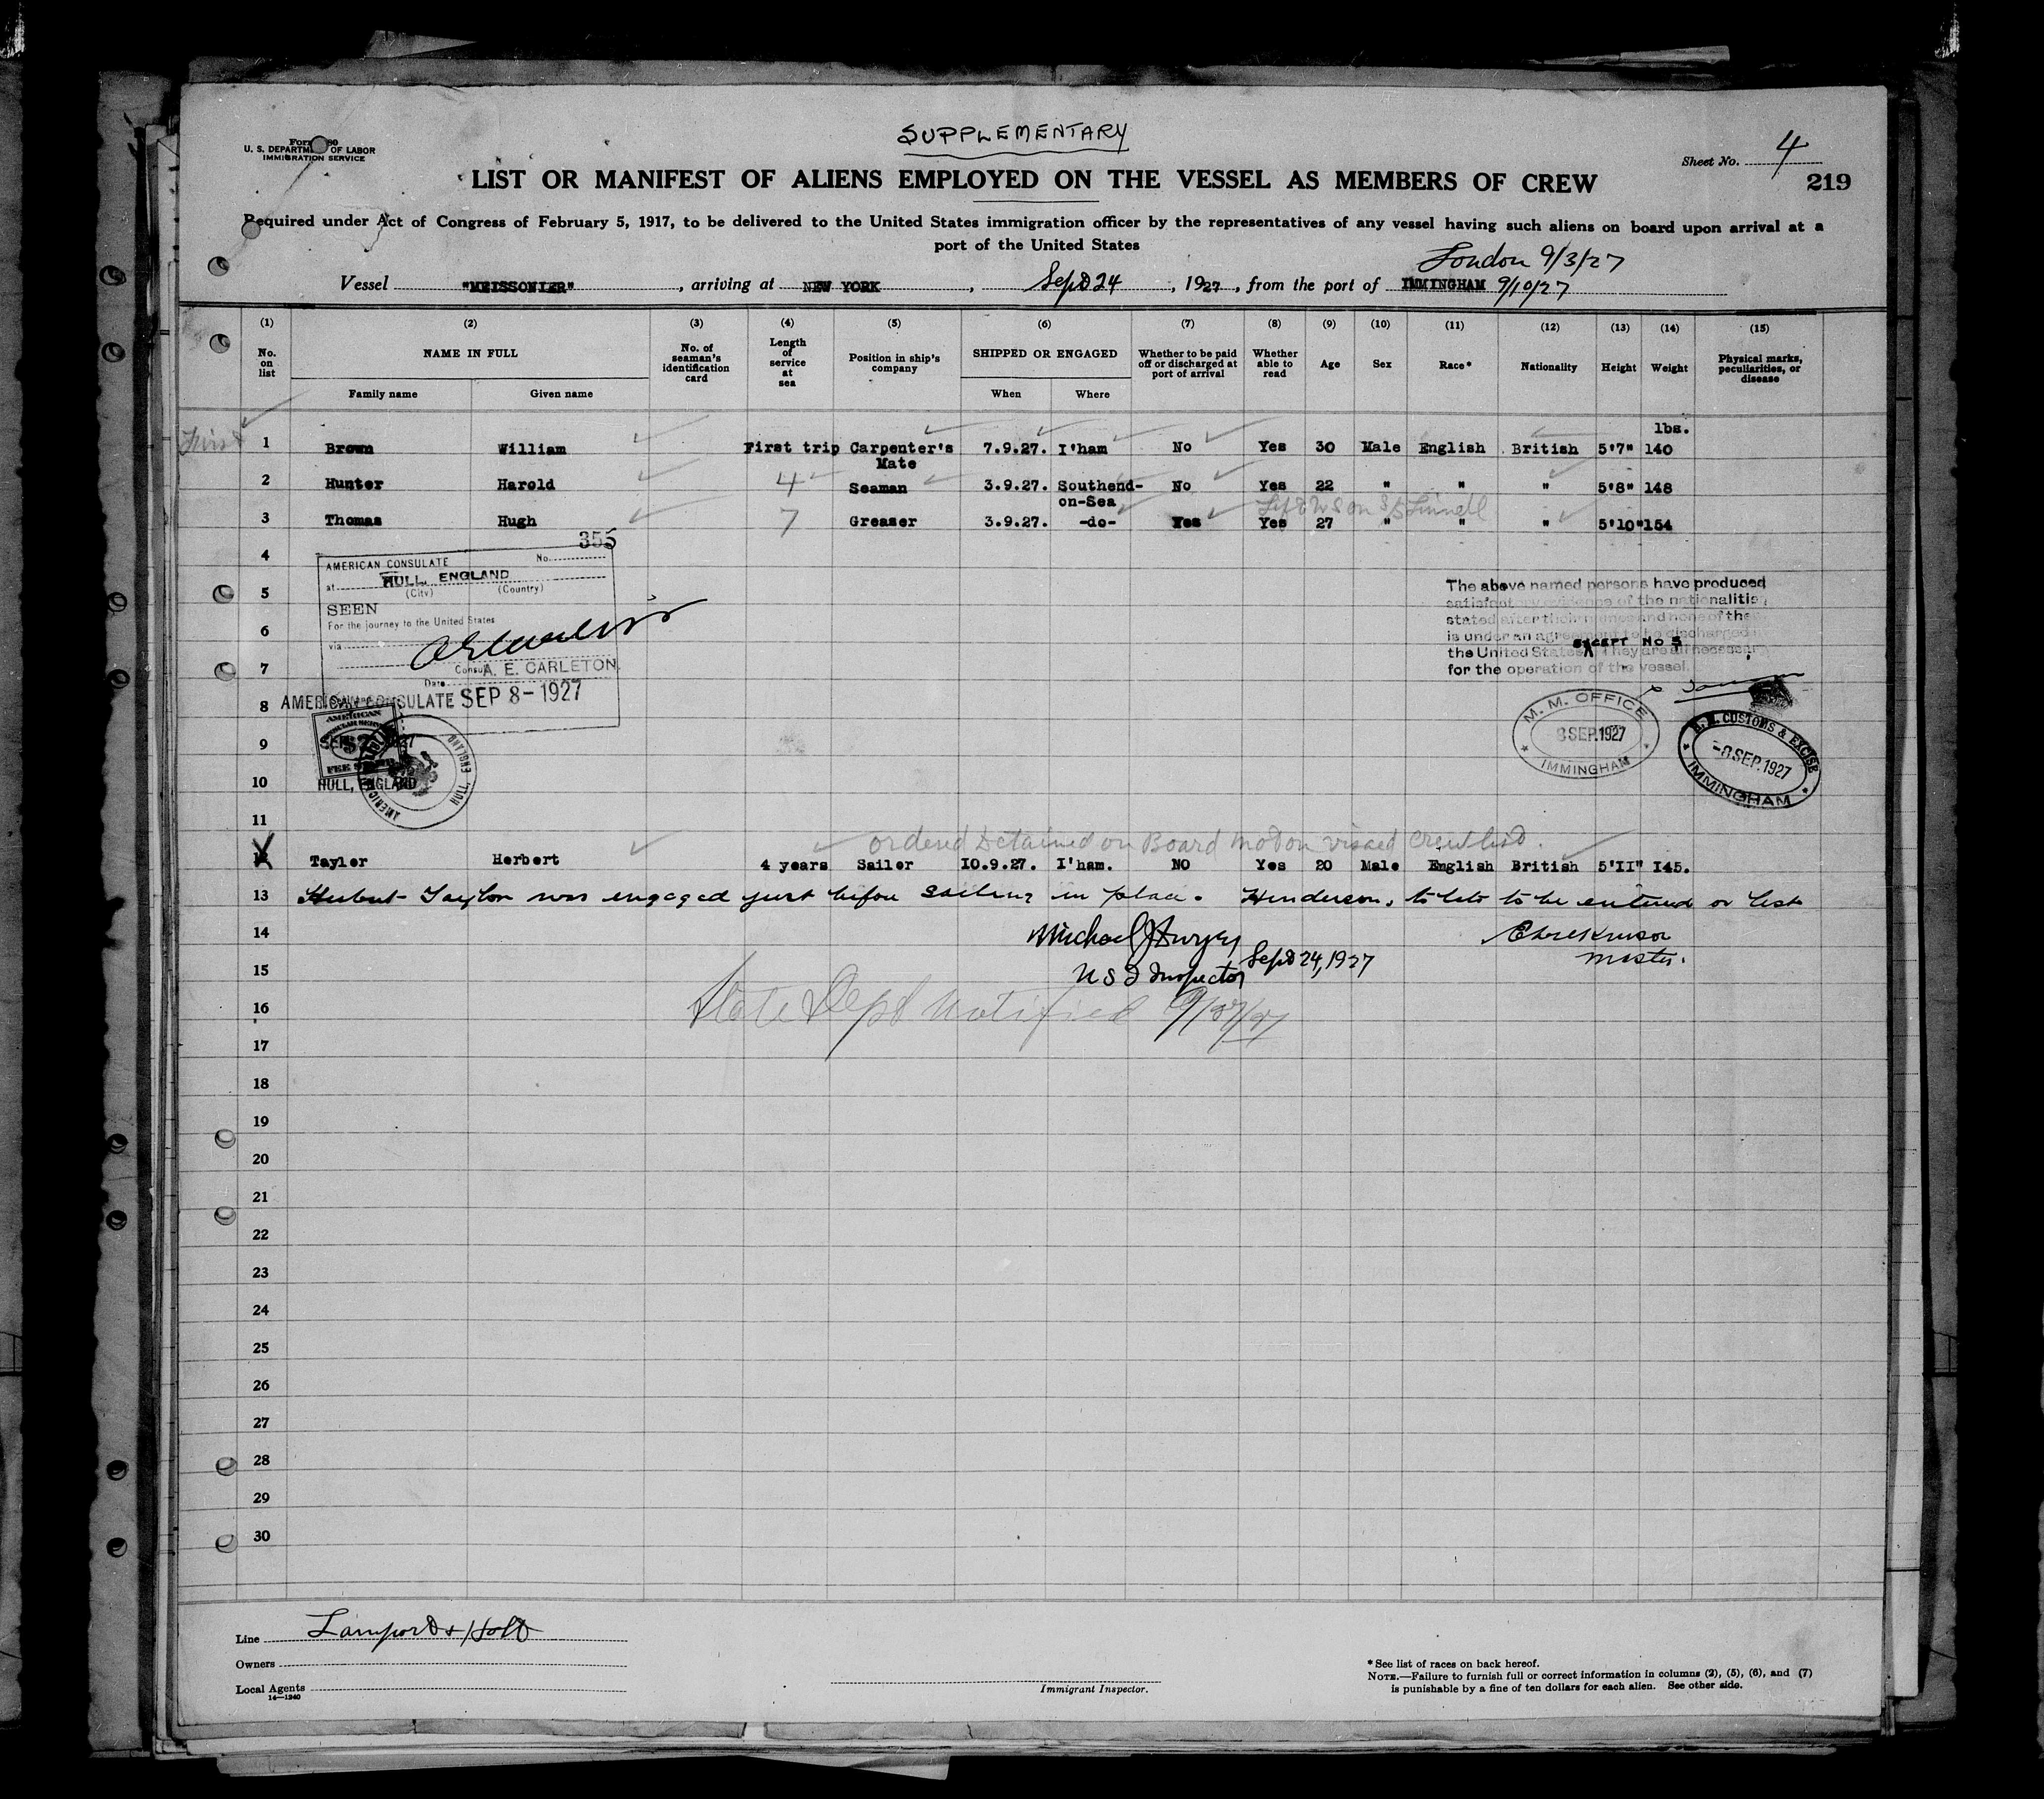 SUPPLEMENTARY
U. S. DEPARTMENT OF LABOR
IMMIGRATION SERVICE
Sheet No. 4
LIST OR MANIFEST OF ALIENS EMPLOYED ON THE VESSEL AS MEMBERS OF CREW
219
Required under Act of Congress of February 5, 1917, to be delivered to the United States immigration officer by the representatives of any vessel having such aliens on board upon arrival at a
port of the United States
London 9/3/27
Vessel "MEISSONIER", arriving at NEW YORK, Sept 24, 1927, from the port of IMMINGHAM 9/10/27
(1) (2) (3) (4) (5) (6) (7) (8) (9) (10) (11) (12) (13) (14) (15)
No. on list NAME IN FULL No. of seaman's identification card Length of service at sea Position in ship's company SHIPPED OR ENGAGED Whether to be paid off or discharged at port of arrival Whether able to read Age Sex Race* Nationality Height Weight Physical marks, peculiarities, or disease
Family name Given name When Where
lbs.
First 1 Brown William First trip Carpenter's Mate 7.9.27. I'ham No Yes 30 Male English British 5'7" 140
2 Hunter Harold 4 Seaman 3.9.27. Southend-on-Sea No Yes 22 " " " 5'8" 148
Left N.Y. on S/S Linnell
3 Thomas Hugh 7 Greaser 3.9.27. -do- Yes Yes 27 " " " 5'10" 154
4
355
AMERICAN CONSULATE No.
at HULL, ENGLAND
(City) (Country)
5
SEEN
For the journey to the United States
6
via
7
Consul A. E. CARLETON
Date
AMERICAN CONSULATE SEP 8 - 1927
8
AMERICAN
$2
FEE STAMP
9
10
HULL, ENGLAND
AMERICAN
HULL, ENGLAND
The above named persons have produced
satisfactory evidence of the nationalities
stated after their names and none of them
is under an agreement to be discharged in
except No 3
the United States. They are all necessary
for the operation of the vessel.
M. M. OFFICE
8 SEP. 1927
IMMINGHAM
H. M. CUSTOMS & EXCISE
-8 SEP. 1927
IMMINGHAM
11
ordered Detained on Board not on visaed crew list.
12 Tayler Herbert 4 years Sailer 10.9.27. I'ham. NO Yes 20 Male English British 5'11" 145.
13 Herbert Taylor was engaged just before sailing in place. Henderson, to late to be entered on list
14
Michael J Dwyer
15
Master.
U S I Inspector Sept 24, 1927
16 State Dept Notified 9/27/27
17
18
19
20
21
22
23
24
25
26
27
28
29
30
Line Lamport & Holt
Owners
Local Agents
14—1240
Immigrant Inspector.
* See list of races on back hereof.
NOTE.—Failure to furnish full or correct information in columns (2), (5), (6), and (7)
is punishable by a fine of ten dollars for each alien. See other side.